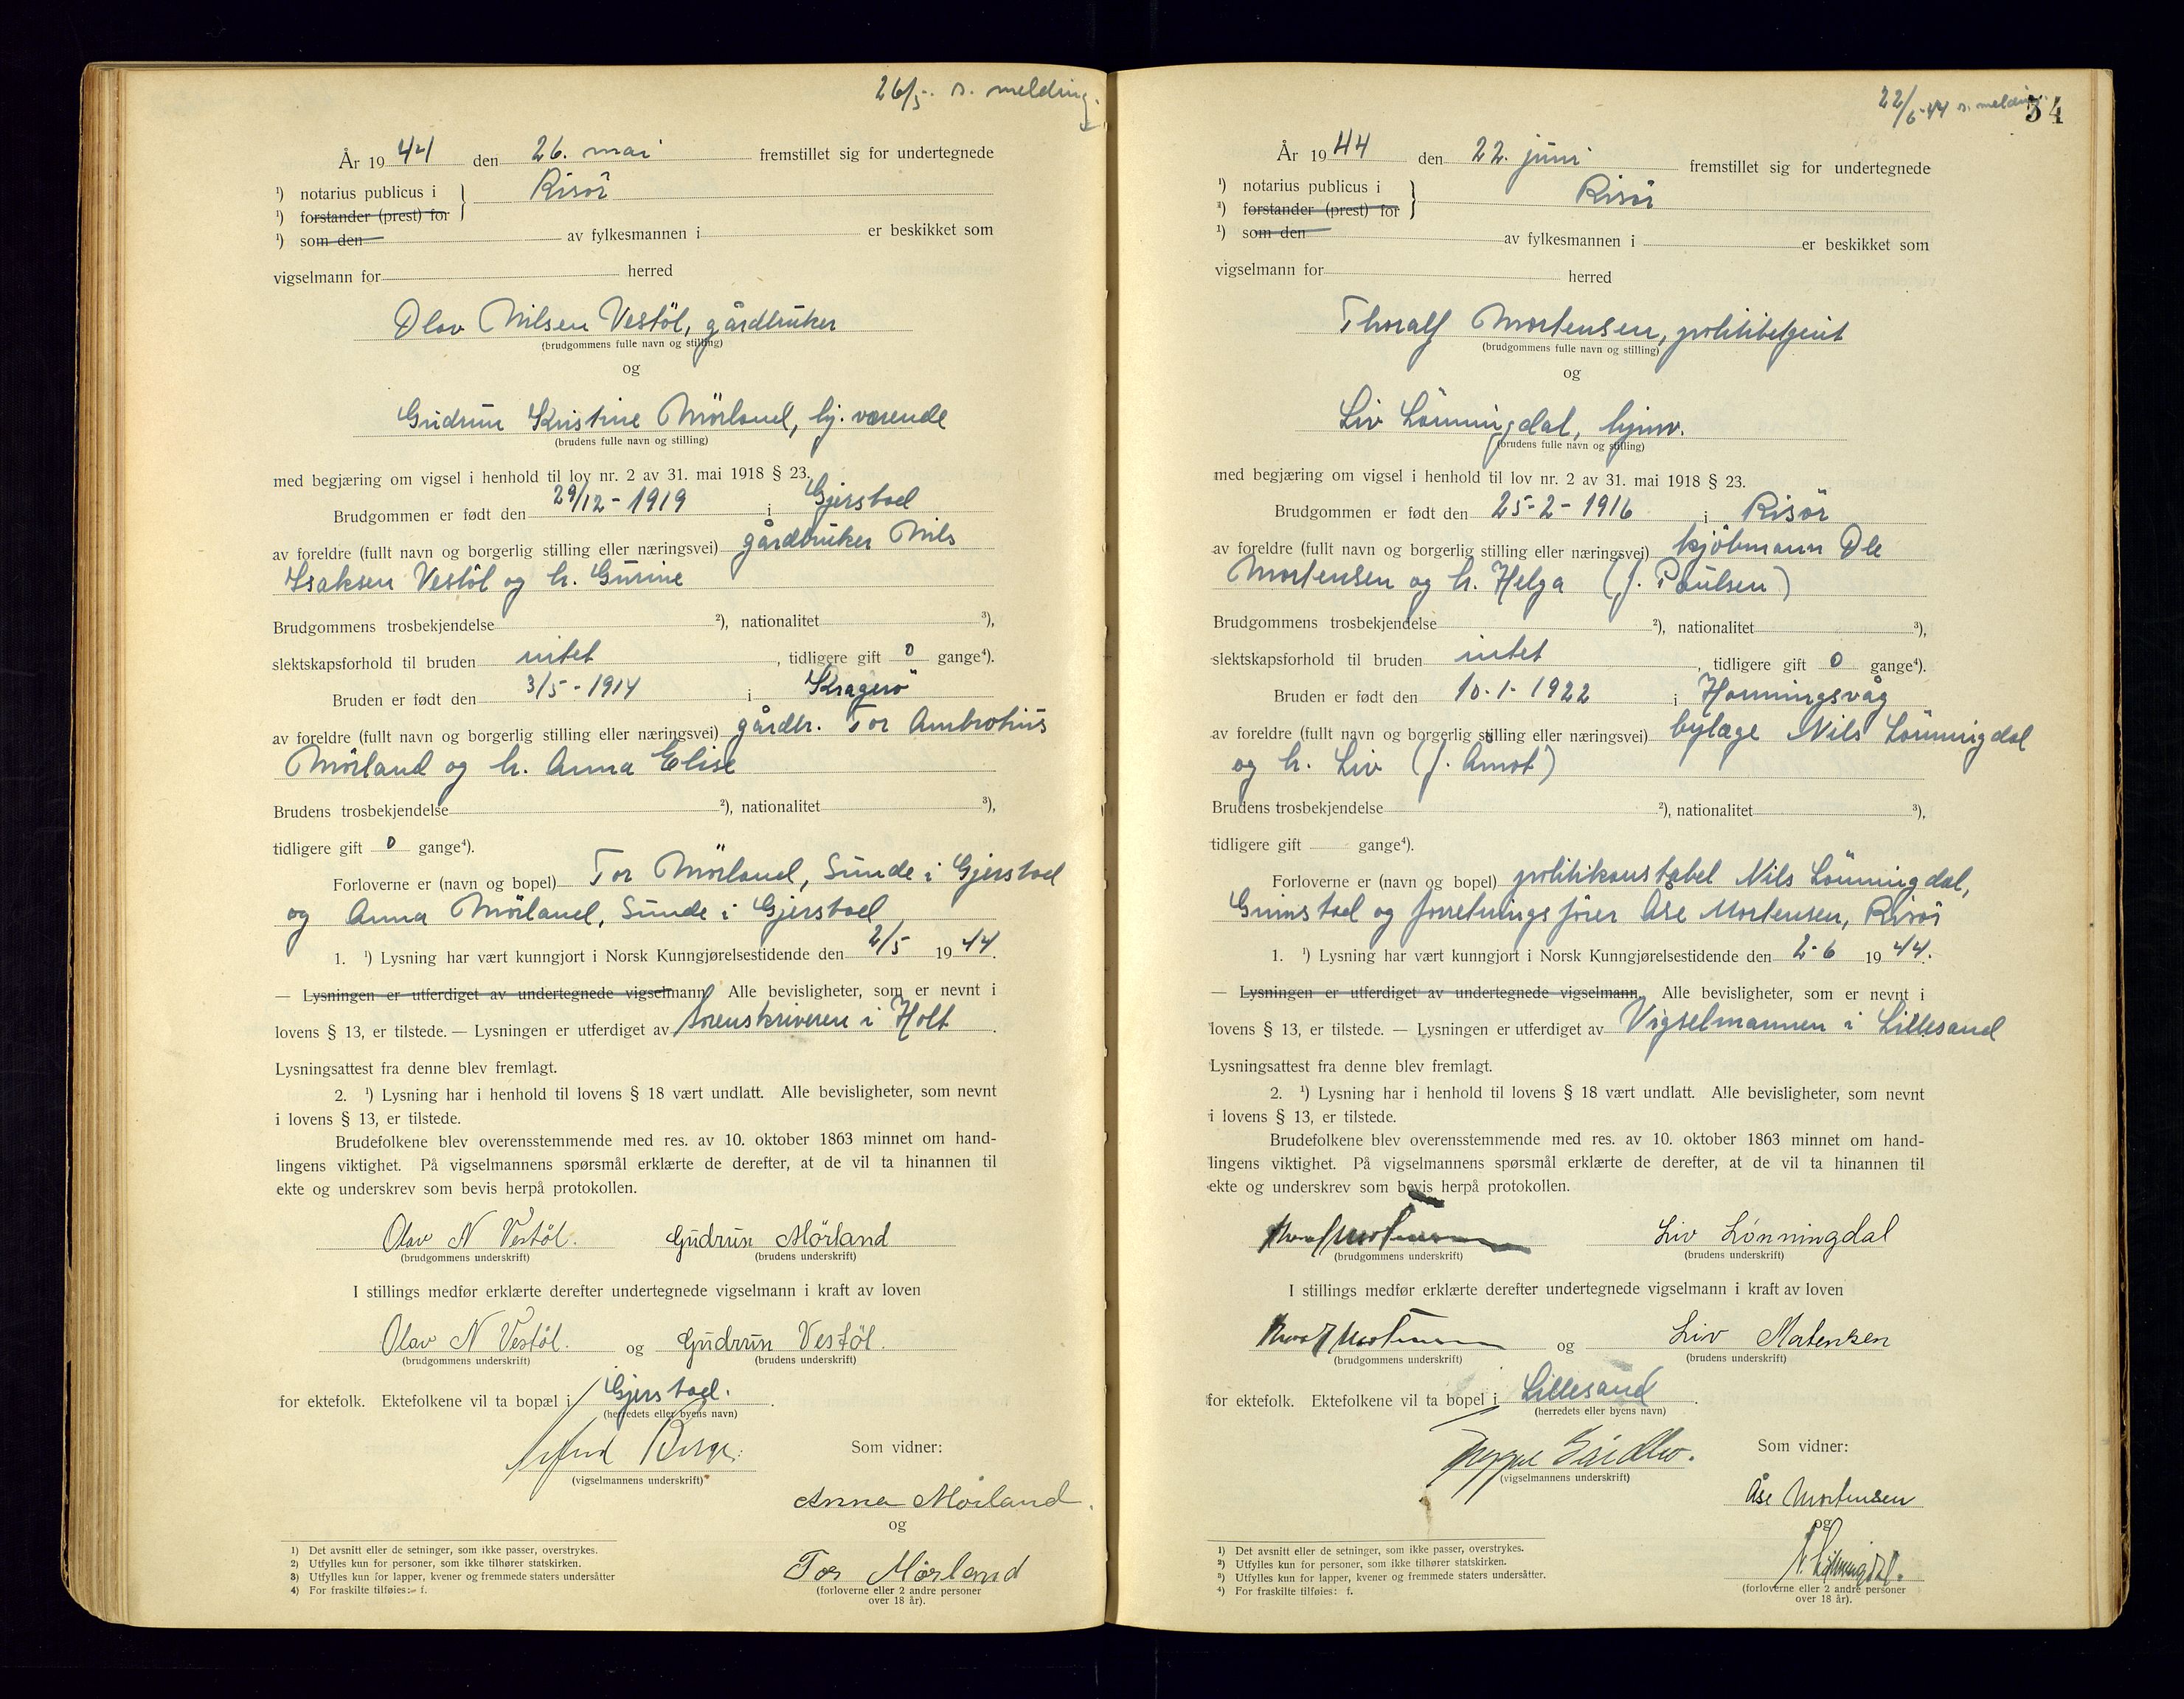 26/5. s. melding.
År 1944 den 26. mai fremstillet sig for undertegnede
¹) notarius publicus i } Risör
¹) forstander (prest) for
¹) som den av fylkesmannen i er beskikket som
vigselmann for herred
Olav Nilsen Vestöl, gårdbruker
(brudgommens fulle navn og stilling)
og
Gudrun Kristine Mörland, hj. værende
(brudens fulle navn og stilling)
med begjæring om vigsel i henhold til lov nr. 2 av 31. mai 1918 § 23.
Brudgommen er født den 29/12 - 1919 i Gjerstad
av foreldre (fullt navn og borgerlig stilling eller næringsvei) gårdbruker Nils
Isaksen Vestöl og h. Gurine
Brudgommens trosbekjendelse ²), nationalitet ³),
slektskapsforhold til bruden intet, tidligere gift 0 gange⁴).
Bruden er født den 3/5 - 1914 i Kragerö
av foreldre (fullt navn og borgerlig stilling eller næringsvei) gårdbr. Tor Ambrotius
Mörland og h. Anna Elise
Brudens trosbekjendelse ²), nationalitet ³),
tidligere gift 0 gange⁴).
Forloverne er (navn og bopel) Tor Mörland, Sunde i Gjerstad
og Anna Mörland, Sunde i Gjerstad
1. ¹) Lysning har vært kunngjort i Norsk Kunngjørelsestidende den 2/5 1944.
— Lysningen er utferdiget av undertegnede vigselmann. Alle bevisligheter, som er nevnt i
lovens § 13, er tilstede. — Lysningen er utferdiget av Sorenskriveren i Holt.
Lysningsattest fra denne blev fremlagt.
2. ¹) Lysning har i henhold til lovens § 18 vært undlatt. Alle bevisligheter, som nevnt
i lovens § 13, er tilstede.
Brudefolkene blev overensstemmende med res. av 10. oktober 1863 minnet om hand-
lingens viktighet. På vigselmannens spørsmål erklærte de derefter, at de vil ta hinannen til
ekte og underskrev som bevis herpå protokollen.
Olav N Vestöl. Gudrun Mörland
(brudgommens underskrift) (brudens underskrift)
I stillings medfør erklærte derefter undertegnede vigselmann i kraft av loven
Olav N Vestöl. og Gudrun Vestöl.
(brudgommens underskrift) (brudens underskrift)
for ektefolk. Ektefolkene vil ta bopæl i Gjerstad.
(herredets eller byens navn)
Berge
(vigselmannens underskrift)
Som vidner:
Anna Mörland.
og
Tor Mörland
(forloverne eller 2 andre personer
over 18 år).
1) Det avsnitt eller de setninger, som ikke passer, overstrykes.
2) Utfylles kun for personer, som ikke tilhører statskirken.
3) Utfylles kun for lapper, kvener og fremmede staters undersåtter
4) For fraskilte tilføies: f.
22/6-44 s. melding.
34
År 1944 den 22. juni fremstillet sig for undertegnede
¹) notarius publicus i } Risör
²) forstander (prest) for
¹) som den av fylkesmannen i er beskikket som
vigselmann for herred
Thoralf Mortensen, politibetjent
(brudgommens fulle navn og stilling)
og
Liv Lönningdal, hjmv.
(brudens fulle navn og stilling)
med begjæring om vigsel i henhold til lov nr. 2 av 31. mai 1918 § 23.
Brudgommen er født den 25-2-1916 i Risör
av foreldre (fullt navn og borgerlig stilling eller næringsvei) kjöbmann Ole
Mortensen og h. Helga (f. Paulsen)
Brudgommens trosbekjendelse ²), nationalitet ³),
slektskapsforhold til bruden intet, tidligere gift 0 gange⁴).
Bruden er født den 10-1-1922 i Honningsvåg
av foreldre (fullt navn og borgerlig stilling eller næringsvei) bylæge Nils Lönningdal
og h. Liv (f. Amot)
Brudens trosbekjendelse ²), nationalitet ³),
tidligere gift gange⁴).
Forloverne er (navn og bopel) politikonstabel Nils Lönningdal,
Grimstad og forretningsförer Åse Mortensen, Risör
1. ¹) Lysning har vært kunngjort i Norsk Kunngjørelsestidende den 2-6 1944.
— Lysningen er utferdiget av undertegnede vigselmann. Alle bevisligheter, som er nevnt i
lovens § 13, er tilstede. — Lysningen er utferdiget av Vigselmannen i Lillesand
Lysningsattest fra denne blev fremlagt.
2. ¹) Lysning har i henhold til lovens § 18 vært undlatt. Alle bevisligheter, som nevnt
i lovens § 13, er tilstede.
Brudefolkene blev overensstemmende med res. av 10. oktober 1863 minnet om hand-
lingens viktighet. På vigselmannens spørsmål erklærte de derefter, at de vil ta hinannen til
ekte og underskrev som bevis herpå protokollen.
Thoralf Mortensen Liv Lönningdal
(brudgommens underskrift) (brudens underskrift)
I stillings medfør erklærte derefter undertegnede vigselmann i kraft av loven
Thoralf Mortensen og Liv Mortensen
(brudgommens underskrift) (brudens underskrift)
for ektefolk. Ektefolkene vil ta bopel i Lillesand.
(herredets eller byens navn)
(vigselmannens underskrift)
Som vidner:
Åse Mortensen
og
N. Lönningdal.
(forloverne eller 2 andre personer
over 18 år).
¹) Det avsnitt eller de setninger, som ikke passer, overstrykes.
²) Utfylles kun for personer, som ikke tilhører statskirken.
³) Utfylles kun for lapper, kvener og fremmede staters undersåtter.
⁴) For fraskilte tilføies: f.